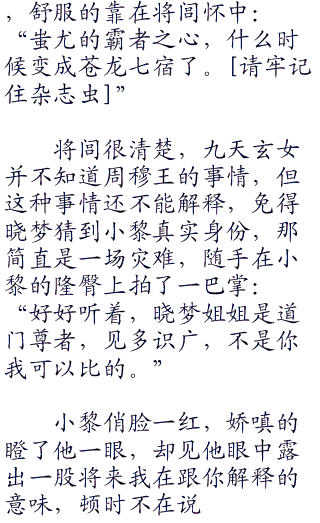 ，舒服的靠在将闾怀中：
“蚩尤的霸者之心，什么时
候变成苍龙七宿了。[请牢记
住杂志虫]”
将闾很清楚，九天玄女
并不知道周穆王的事情，但
这种事情还不能解释，免得
晓梦猜到小黎真实身份，那
简直是一场灾难，随手在小
黎的隆臀上拍了一巴掌：
“好好听着，晓梦姐姐是道
门尊者，见多识广，不是你
我可以比的。”
小黎俏脸一红，娇嗔的
瞪了他一眼，却见他眼中露
出一股将来我在跟你解释的
意味，顿时不在说